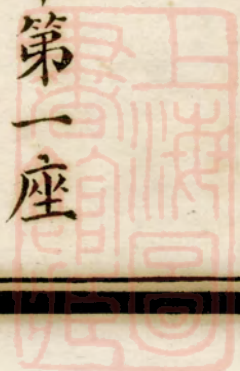 第一座
上海圖書館藏